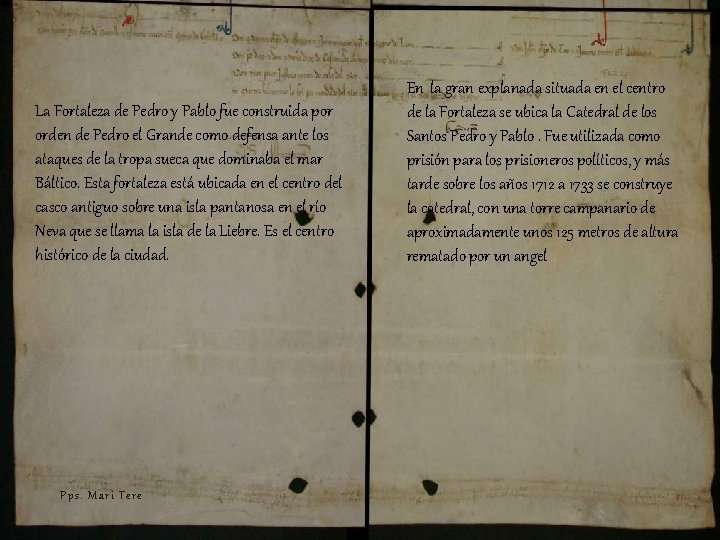 La Fortaleza de Pedro y Pablo fue construida por
orden de Pedro el Grande como defensa ante los
ataques de la tropa sueca que dominaba el mar
Báltico. Esta fortaleza está ubicada en el centro del
casco antiguo sobre una isla pantanosa en el río
Neva que se llama la isla de la Liebre. Es el centro
histórico de la ciudad.
Pps. Mari Tere
En la gran explanada situada en el centro
de la Fortaleza se ubica la Catedral de los
Santos Pedro y Pablo . Fue utilizada como
prisión para los prisioneros políticos, y más
tarde sobre los años 1712 a 1733 se construye
la catedral, con una torre campanario de
aproximadamente unos 125 metros de altura
rematado por un angel